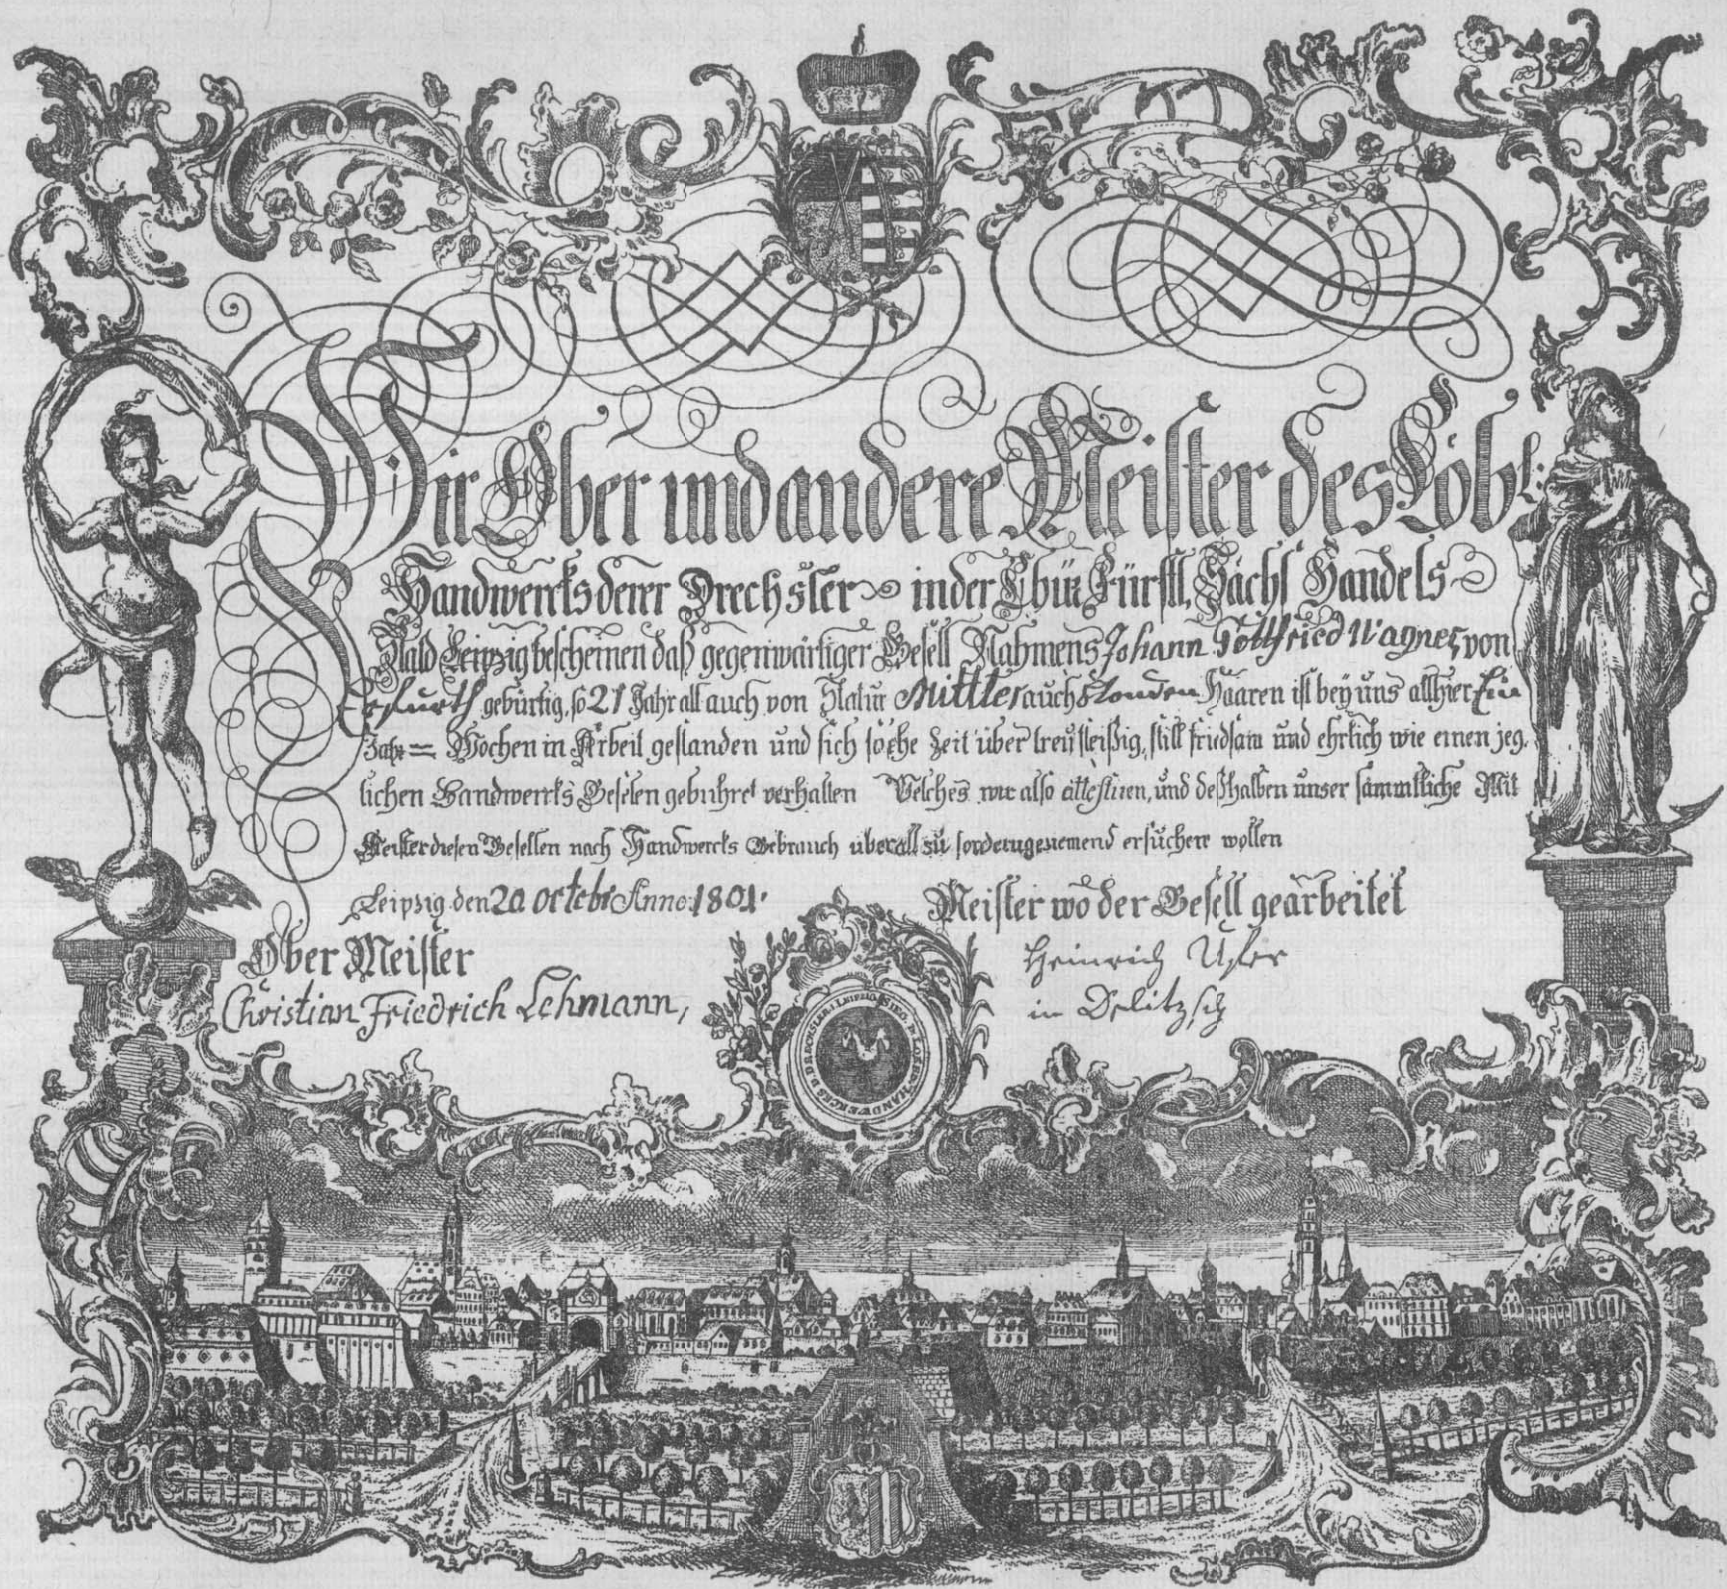 Wir Ober und andere Meister des Löbl:
Handwercks derer Drechsler in der Chur Fürstl. Sächs Handels
Stadt Leipzig bescheinen daß gegenwärtiger Gesell Nahmens Johann Gottfried Wagner, von
Erfurth gebürtig, so 21 Jahr alt auch von Statur Mittler auch blonden Haaren ist bey uns allhier Ein
Jahr = Wochen in Arbeit gestanden und sich solche Zeit über treu fleißig, still friedsam und ehrlich wie einen jeg.
lichen Handwercks Gesellen gebühret verhalten Welches wir also attestiren, und deßhalben unser sämmtliche Mit
Meister diesen Gesellen nach Handwercks Gebrauch überall zu ersuchen wollen
Leipzig den 20 octobr Anno: 1801.
Meister wo der Gesell gearbeitet
Ober Meister
Heinrich
Christian Friedrich Lehmann,
in Delitzsch
SIEG. D. LOEBL. HANDWERCKS D. DRECHSLER I LEIPZIG